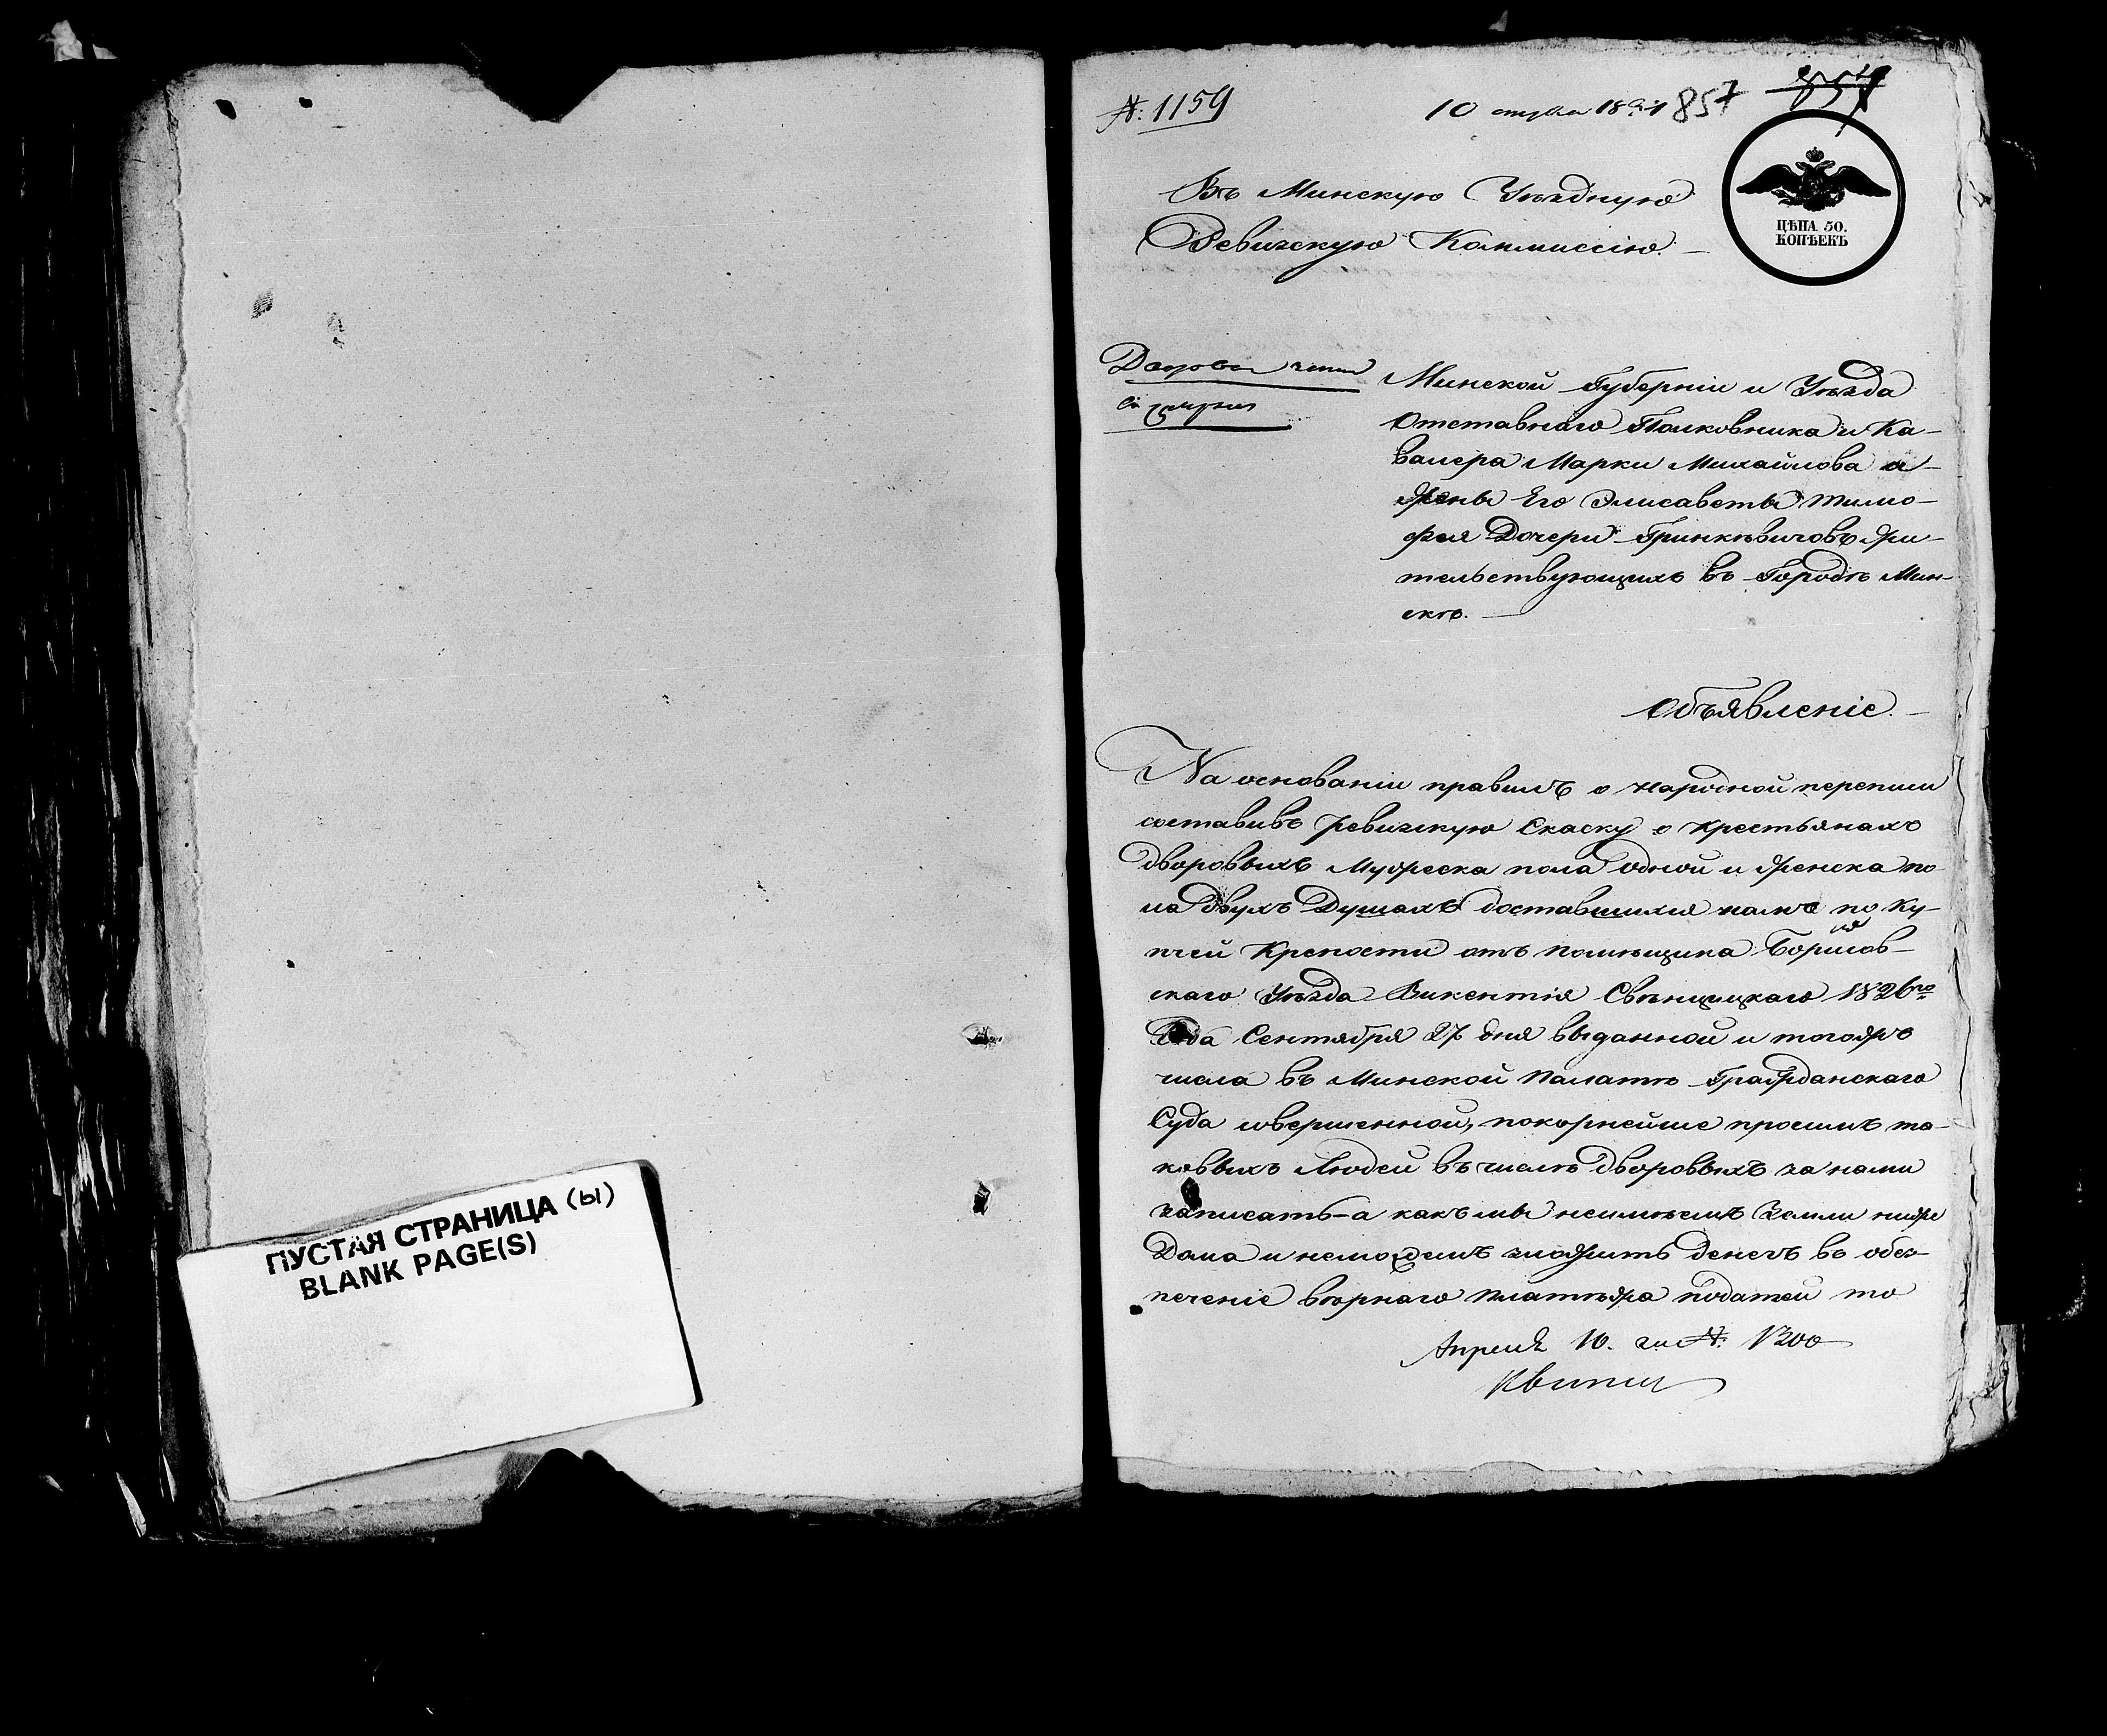 ПУСТАЯ СТРАНИЦА (Ы)
BLANK PAGE(S)
№: 1159
10 18 857 857
ЦѢНА 50.
КОПѢЕКЪ
Въ Минскую Уѣздную
Ревизскую Коммиссію. —
Минской Губерніи и Уѣзда
Отставнаго Полковника и Ка-
валера Марки Михайлова и
жены Его Элисаветы Тимо-
фея Дочери Гринкѣвичовъ жи-
тельствующихъ въ Городѣ Мин-
скѣ. —
Объявленіе. —
На основаніи правилъ о народной переписи
составивъ ревизскую Скаску о крестьянахъ
дворовыхъ Мужеска пола одной и женска по-
ла двухъ Душахъ доставшихся намъ по Ку-
пчей Крепости отъ помѣщика Борисов-
скаго Уѣзда Викентія Свѣнцицкаго 1826го
Года Сентября 27 дня выданной и тогожъ
числа въ Минской Палатѣ Гражданскаго
Суда совершенной, покорнейше просимъ та-
ковыхъ Людей въ числѣ дворовыхъ за нами
записать - а какъ мы неимѣемъ Земли ниже
Дома и неможемъ зложить денегъ въ обез-
печеніе вѣрнаго платѣжа податей то
Апреля 10. за №: 1300